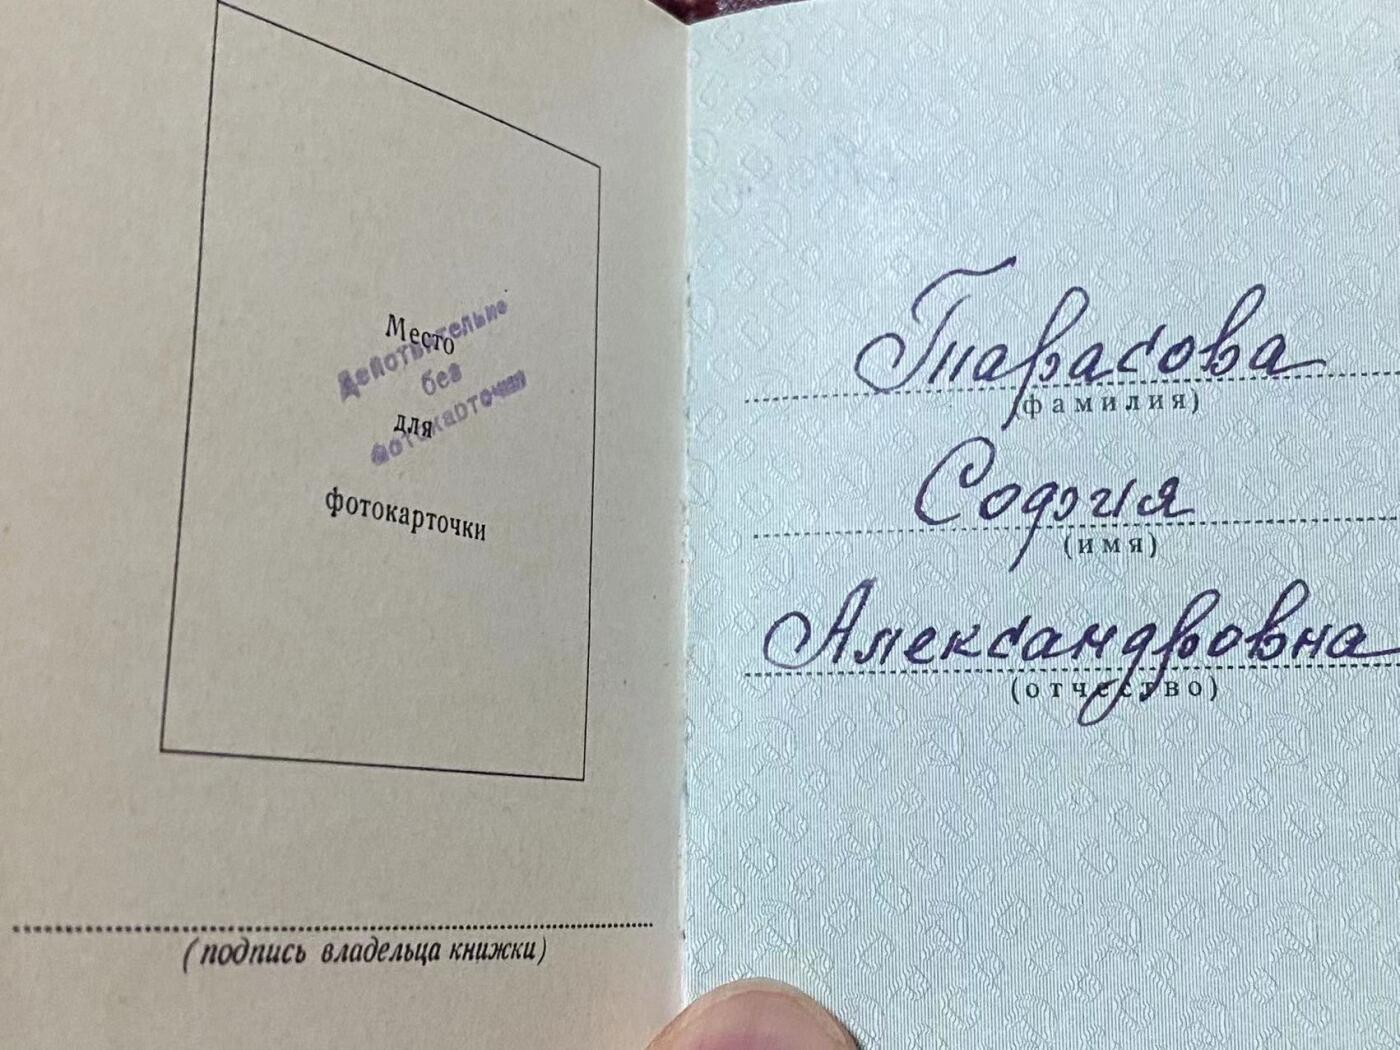 Место
для
фотокарточки
Действительно
без
фотокарточки
(подпись владельца книжки)
Тарасова
(фамилия)
София
(имя)
Александровна
(отчество)